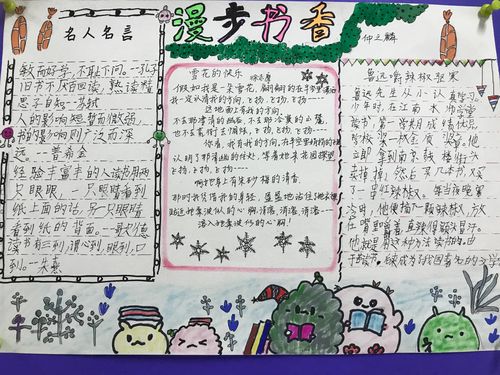 漫步书香
仲之麟
名人名言
敏而好学,不耻下问。--孔子
旧书不厌百回读,熟读精
思子自知--苏轼
人的影响短暂而微弱,
书的影响则广泛而深
远。--普希金
经验丰富的人读书用两
只眼睛,一只眼睛看到
纸上面的话,另一只眼睛
看到纸的背面。--歌德
读书有三到,谓心到,眼到,口
到。--朱熹
雪花的快乐
徐志摩
假如我是一朵雪花,翩翩的在半空里潇洒
我一定认清我的方向,飞扬,飞扬,飞扬……
这地面上有我的方向。
不去那冷寞的幽谷,不去那凄清的山麓,
也不去荒街去惆怅,飞扬,飞扬,飞扬……
你看,我有我的方向,在半空里娟娟的飞舞
认明了那清幽的住处,等着她来花园探望
飞扬,飞扬,飞扬……
啊她身上有朱砂梅的清香,
那时我凭借我的身轻,盈盈地沾住她的衣襟
贴近她柔波似的心胸消溶,消溶,消溶……
溶入她柔波似的心胸!
鲁迅嚼辣椒驱寒
鲁迅先生从小认真学习。
少年时,在江南水师学堂
读书,第一学期成绩优异,
学校奖一枚金质奖章。他
立即拿到南京鼓楼街头
卖掉,然后买了几本书,又买
了一串红辣椒。每当夜晚寒
冷时,他便摘下一颗辣椒,放
在嘴里嚼着,直辣得额头冒汗。
他就是用这种办法驱寒的。由
于读书,后来成为我国著名的文学